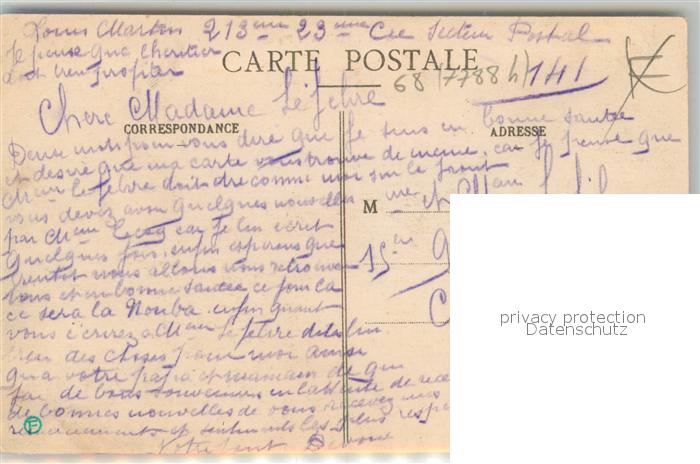 Louis Martin 213eme 23eme Cie Secteur Postal
Je pense que Chartier
doit bien profiter
CARTE POSTALE
68 (7788 h) 141
Chere Madame Lefebre
CORRESPONDANCE
ADRESSE
Deux mots pour vous dire que je suis en bonne santee
et desire que ma carte vous trouve de meme. car je pense que
Mr Lefebre doit etre comme moi sur le front
M me et Mr
vous devez avoir quelques nouvelles
par Mme car je lui ecrit
quelques fois, enfin esperons que
bientot nous allons nous retrouver
15 en
tous et en bonne santee ce jour la
ce sera la Nouba enfin quant
vous ecrirez a Mr Lefebre dites lui
bien des choses pour moi ainsi
qua votre papa et maman de qui
jai de bons souvenirs en lattente de rece
de bonnes nouvelles de vous recevez mes
remerciements et sentiments les plus respe
Votre Devoue
F
privacy protection
Datenschutz